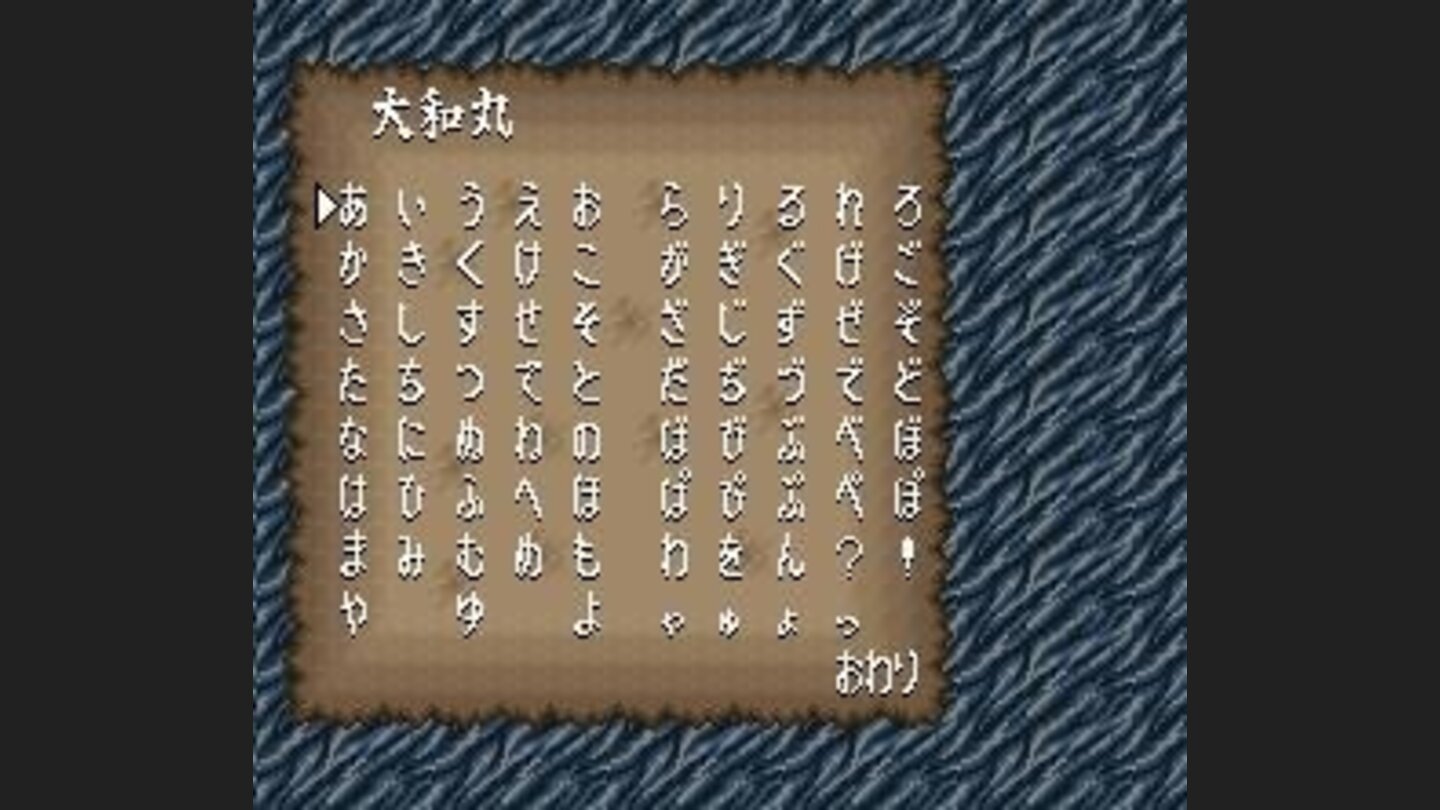 大和丸
あ い う え お ら り る れ ろ
か き く け こ が ぎ ぐ げ ご
さ し す せ そ ざ じ ず ぜ ぞ
た ち つ て と だ ぢ づ で ど
な に ぬ ね の ば び ぶ べ ぼ
は ひ ふ へ ほ ぱ ぴ ぷ ぺ ぽ
ま み む め も わ を ん ? !
や ゆ よ ゃ ゅ ょ っ
おわり